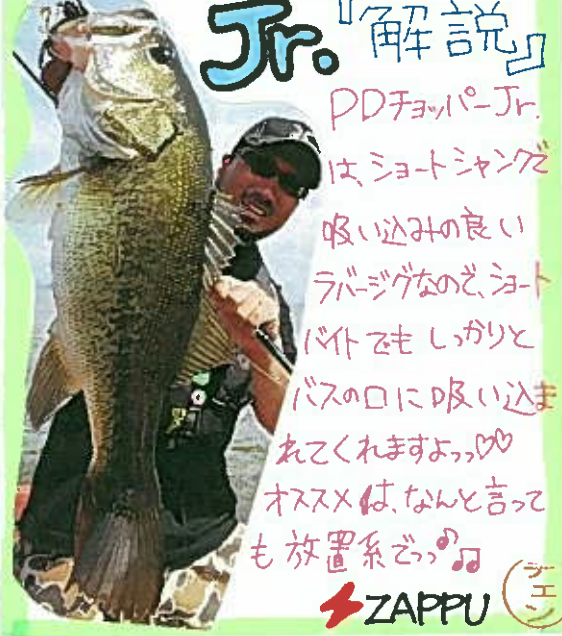 Jr.『解説』
PDチョッパーJr.
は、ショートシャンクで
吸い込みの良い
ラバージグなので、ショート
バイトでも しっかりと
バスの口に吸い込ま
れてくれますよっっ♡♡
オススメは、なんと言って
も 放置系でっっ♪♫
ZAPPU
ジエン